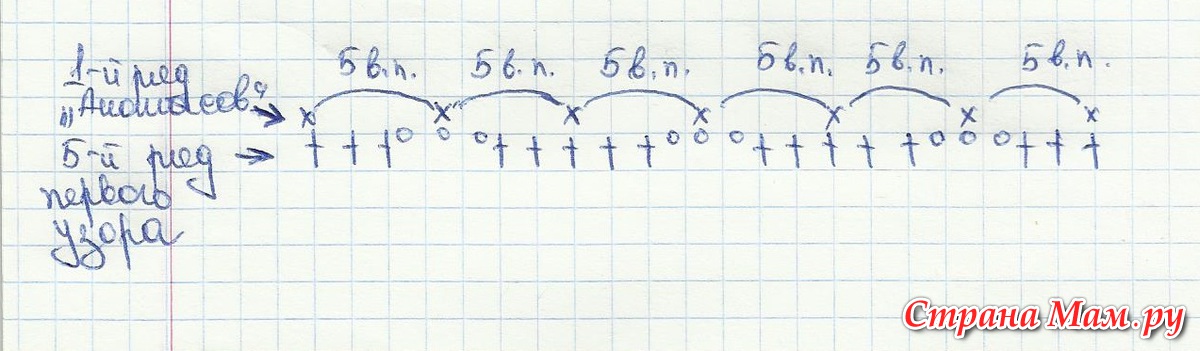 5 в.п. 5 в.п. 5 в.п. 5 в.п. 5 в.п. 5 в.п.
1-й ряд
„Ананасов"
5-й ряд
первого
узора
Страна Мам.ру